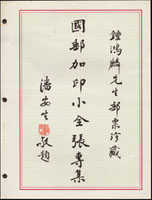 鍾鴻麟先生郵票珍藏
國郵加印小全張專集
潘安生敬題